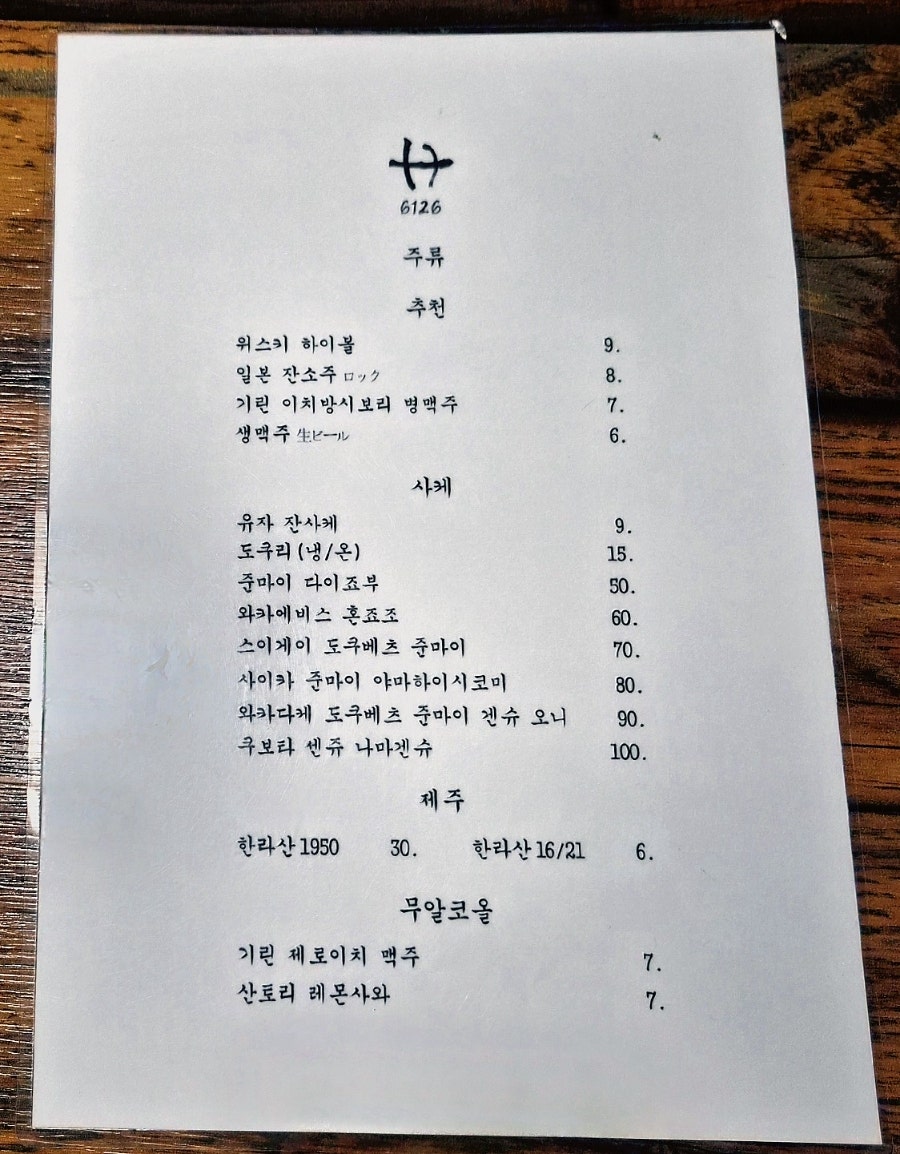 6126
주류
추천
위스키 하이볼 9.
일본 잔소주 ロック 8.
기린 이치방시보리 병맥주 7.
생맥주 生ビール 6.
사케
유자 잔사케 9.
도쿠리(냉/온) 15.
준마이 다이죠부 50.
와카에비스 혼죠조 60.
스이게이 도쿠베츠 준마이 70.
사이카 준마이 야마하이시코미 80.
와카다케 도쿠베츠 준마이 겐슈 오니 90.
쿠보타 센쥬 나마겐슈 100.
제주
한라산1950 30. 한라산16/21 6.
무알코올
기린 제로이치 맥주 7.
산토리 레몬사와 7.